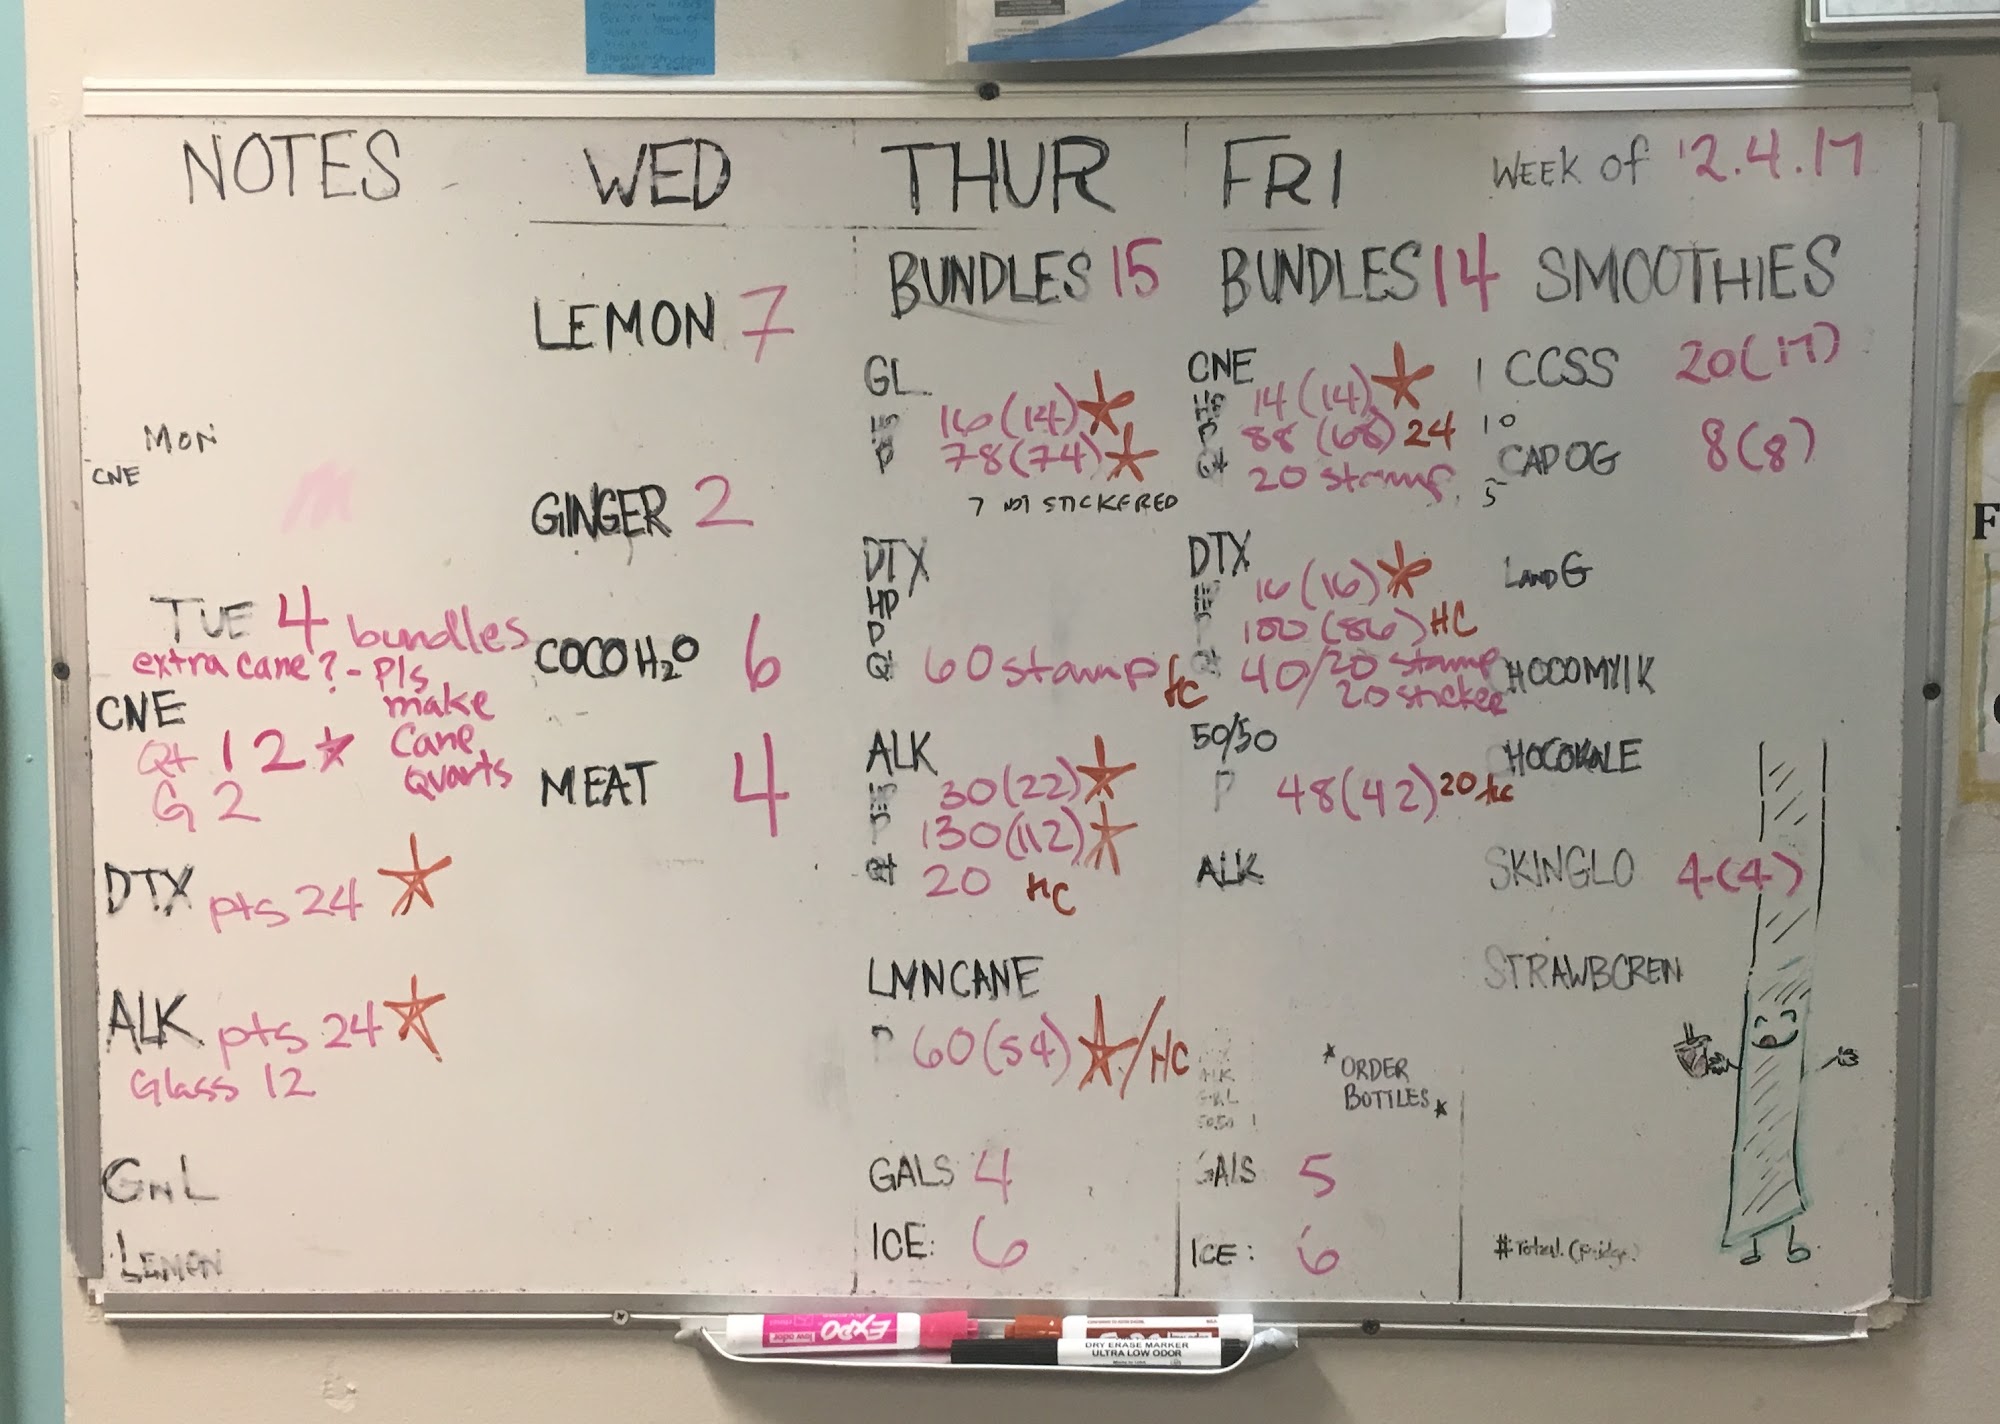 NOTES
MON
CNE
TUE 4 bundles
extra cane? - Pls
make
Cane
Quarts
CNE
Qt 12
G 2
DTX pts 24
ALK pts 24
Glass 12
GNL
LEMON
WED
LEMON 7
GINGER 2
COCO H2O 6
MEAT 4
THUR
BUNDLES 15
GL
16 (14)
P 78 (74)
7 NOT STICKERED
DTX
HP
P
Qt 60 stamp HC
ALK
30 (22)
P 130 (112)
Qt 20 HC
LMNCANE
P 60 (54) / HC
GALS 4
ICE: 6
FRI
BUNDLES 14
CNE
14 (14)
88 (68) 24
Qt 20 stamp
DTX
16 (16)
100 (86) HC
Qt 40/20 stamp
20 sticker
50/50
P 48 (42) 20 HC
ALK
ALK
50/50
*ORDER
BOTTLES*
GALS 5
ICE: 6
WEEK OF 12.4.17
SMOOTHIES
1 CCSS 20 (17)
10
CADOG 8 (8)
5
LANDG
HOCOMYLK
HOCOKALE
SKINGLO 4 (4)
STRAWBCREN
#Total (fridge)
EXPO
low odor
DRY ERASE MARKER
ULTRA LOW ODOR